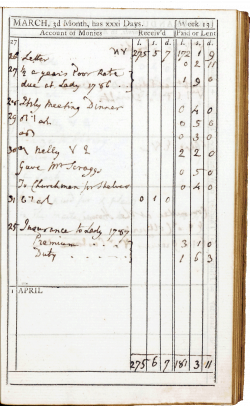 MARCH, 3d Month, has xxxi Days.
Week 13
Account of Monies
Receiv'd
Paid or Lent
27
l. s. d. l. s. d.
275 5 7 172 1 9
26 Letter 0 2 11
27 ½ a years Poor Rate
due at Lady 1786 1 9 0
28 Meeting Dinner 0 4 0
29 0 5 0
0 3 0
30 Nelly V E 2 2 0
Gave Mr Scraggs 0 5 0
To Churchman for Shelves 0 4 0
31 0 1 0
25 Insurance to Lady 1787
Premium 3 1 0
Duty 1 6 3
1 APRIL
275 6 7 181 3 11